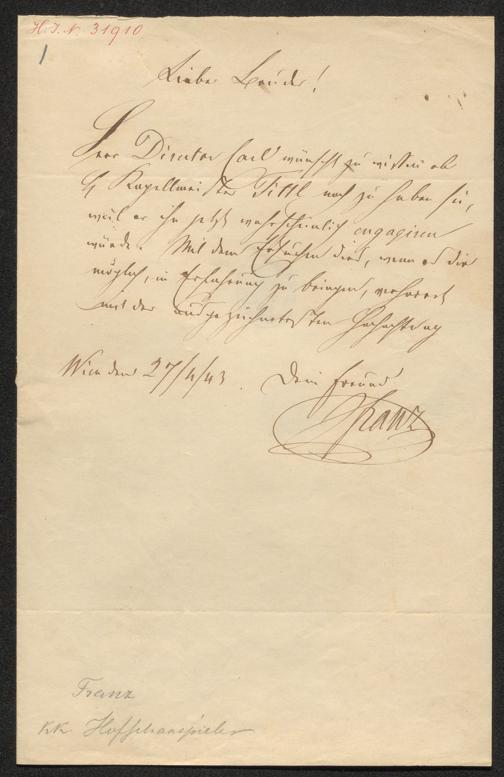 H.I.N. 31910
1
Lieber Bruder!
Herr Director Carl wünscht zu wissen ob
H Kapellmeister Titl noch zu haben sei,
weil er ihn jetzt wahrscheinlich engagiren
würde. Mit dem Ersuchen dies, wenn es dir
möglich, in Erfahrung zu bringen, verharrt
mit der ausgezeichnetesten Hochachtung
Wien den 27/4/43. Dein Freund
Franz
Franz
kk Hofschauspieler